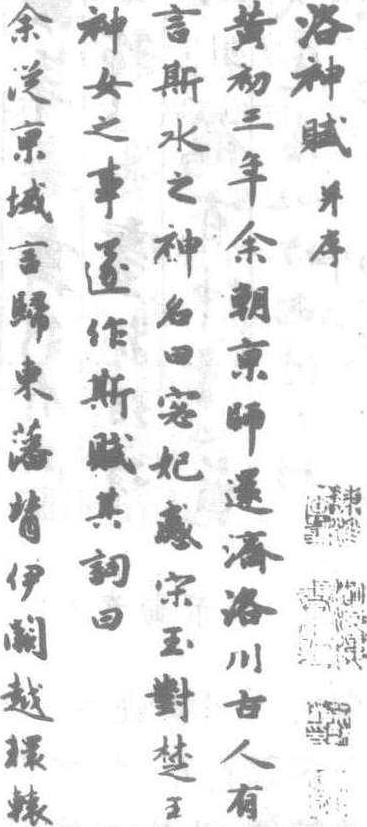 洛神賦并序
黃初三年余朝京師還濟洛川古人有
言斯水之神名曰宓妃感宋玉對楚王
神女之事遂作斯賦其詞曰
余從京域言歸東藩背伊闕越轘轅